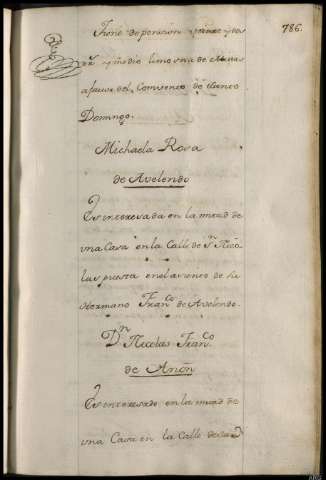 786.
Tiene de pension quinze y dos
y medio limosna de Misas
a favor del Convento de Santo
Domingo.
Michaela Rosa
de Avelendo
Es interesada en la mitad de
una Casa en la Calle de Sn. Nico
las puesta en el asiento de su
Hermano Franco. de Avelendo.
Dn. Nicolas Franco.
de Anòn
Es interesado en la mitad de
una Casa en la Calle de